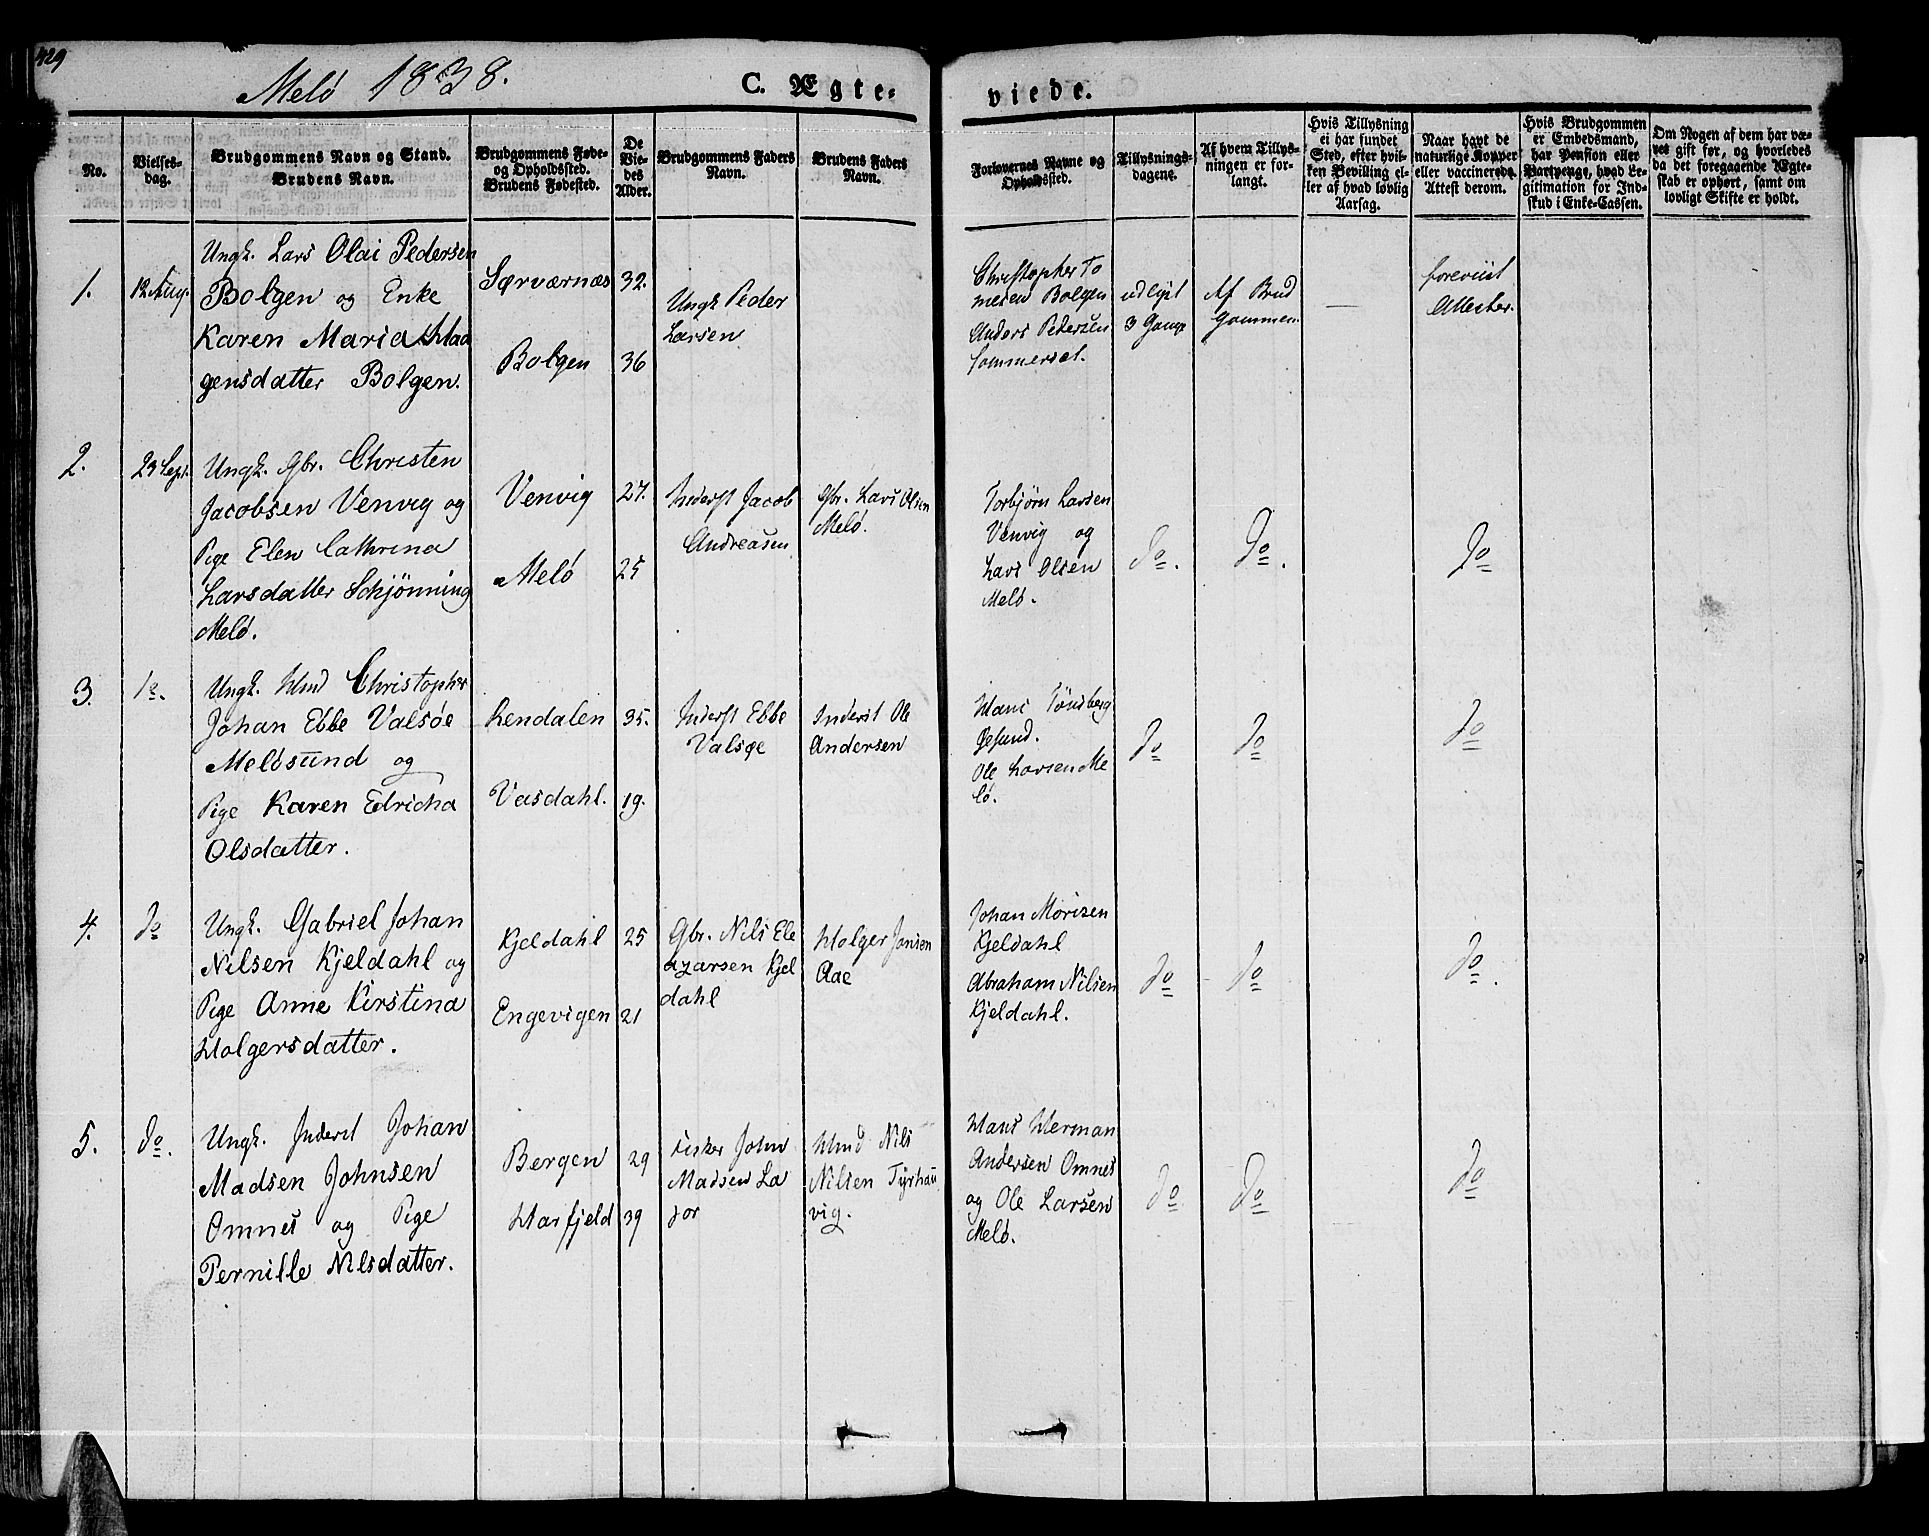 429
Melö 1838.
C. Ægte-
viede.
No.
Vielses-
dag.
Brudgommens Navn og Stand.
Brudens Navn.
Brudgommens Føde-
og Opholdssted.
Brudens Fødested.
De
Vie-
des
Alder.
Brudgommens Faders
Navn.
Brudens Faders
Navn.
Forlovernes Navne og
Opholdssted.
Tillysnings-
dagene.
Af hvem Tillys-
ningen er for-
langt.
Hvis Tillysning
ei har fundet
Sted, efter hvil-
ken Bevilling el-
ler af hvad lovlig
Aarsag.
Naar havt de
naturlige Kopper
eller vaccinerede.
Attest derom.
Hvis Brudgommen
er Embedsmand,
har Pension eller
Vartpenge, hvad Le-
gitimation for Ind-
skud i Enke-Cassen.
Om Nogen af dem har væ-
ret gift før, og hvorledes
da det foregaaende Ægte-
skab er ophørt, samt om
lovligt Skifte er holdt.
1.
12 Aug.
Ungk. Lars Olai Pedersen
Bolgen og Enke
Karen Maria Haa
gensdatter Bolgen.
Sørværnæs
Bolgen
32.
36
Ungk Peder
Larsen
Christopher To
mesen Bolgen
Anders Pedersen
Sommerset.
udlyst
3 Gange
Af Brud
Gommen.
foreviist
Attester.
2.
23 Sept.
Ungk. Gbr. Christen
Jacobsen Venvig og
Pige Elen Cathrina
Larsdatter Schjönning
Melö.
Venvig
Melö
27.
25
Inderst Jacob
Andreasen
Gbr. Lars Olsen
Melö.
Torbjörn Larsen
Venvig og
Lars Olsen
Melö.
do.
do.
do
3.
Ungk. Hmd Christopher
Johan Ebbe Valsöe
Melösund og
Pige Karen Edricha
Olsdatter.
Lendalen
Vasdahl.
35.
19.
Inderst Ebbe
Valsøe
Inderst Ole
Andersen
Hans Tönsberg
Øesund.
Ole Larsen Me
lö.
do
do
do
4.
do
Ungk. Gabriel Johan
Nilsen Kjeldahl og
Pige Anne Kirstina
Holgersdatter.
Kjeldahl
Engevigen
25
21
Gbr. Nils Ele
azarsen Kjel
dahl
Holger Jansen
Aae
Johan Morisen
Kjeldahl
Abraham Nilsen
Kjeldahl.
do
do
do.
5.
do.
Ungk. Inderst Johan
Madsen Johnsen
Omnes og Pige
Pernille Nilsdatter.
Bergen
Harfjeld
29
39
Fisker John
Madsen La
Hmd Nils
Nilsen Tyrhau
vig.
Hans Herman
Andersen Omnes
og Ole Larsen
Melö.
do
do
do